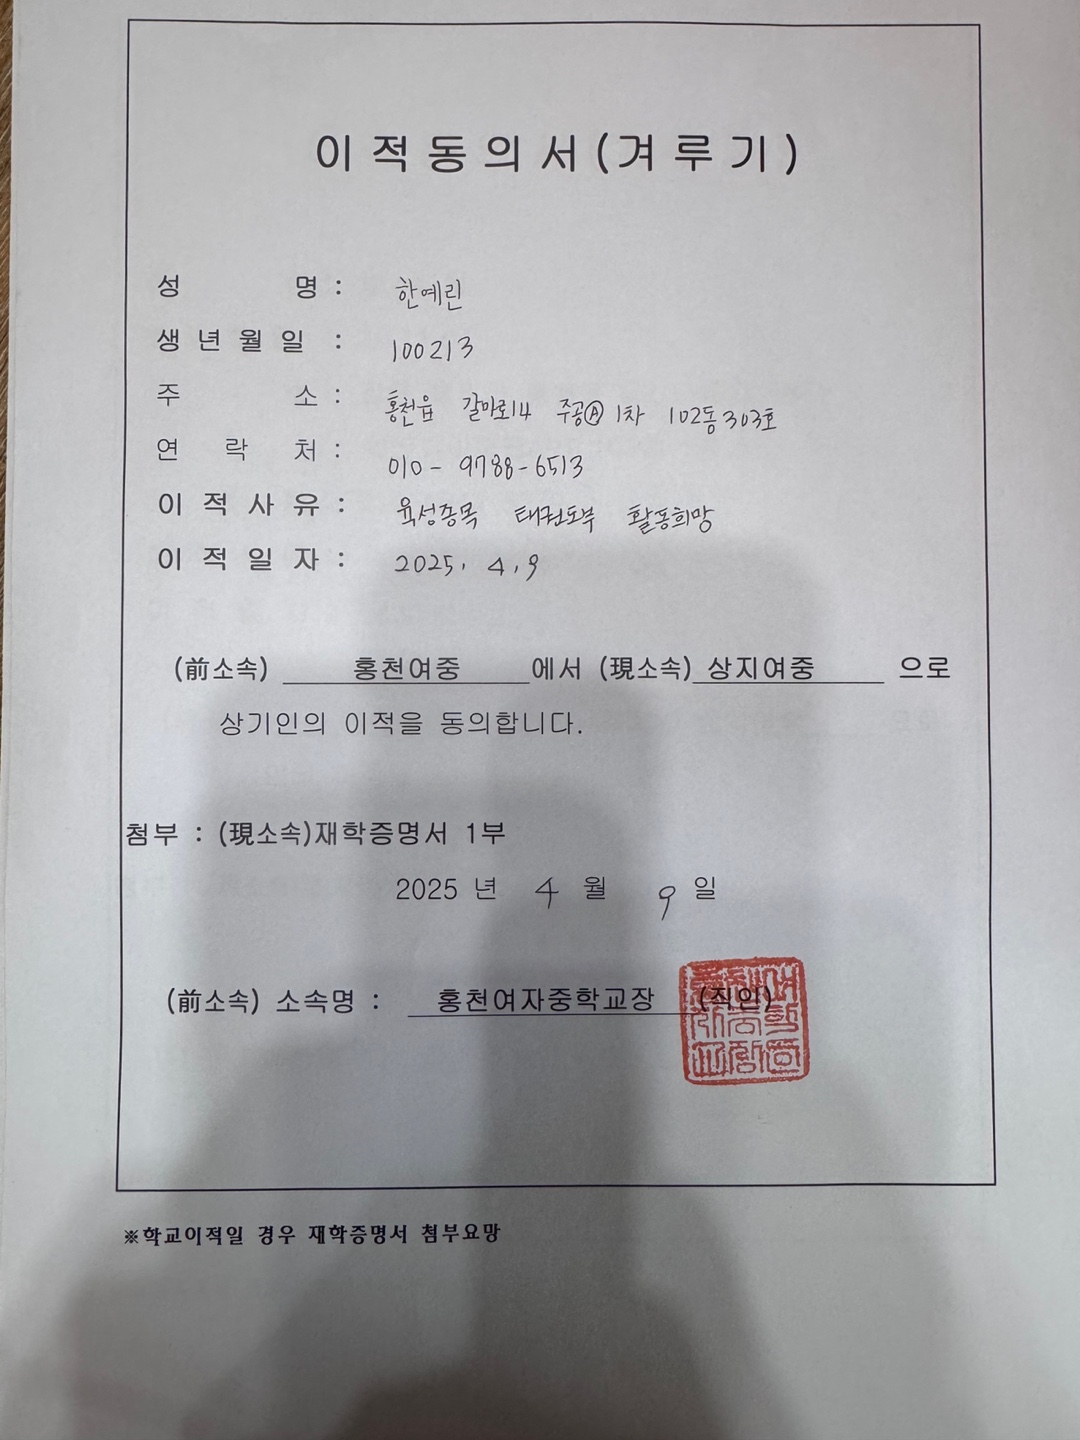 이적동의서(겨루기)
성 명 : 한예린
생년월일 : 100213
주 소 : 홍천읍 갈마로14 주공Ⓐ 1차 102동 303호
연 락 처 : 010-9788-6513
이적사유 : 육성종목 태권도부 활동희망
이적일자 : 2025. 4. 9
(前소속) 홍천여중 에서 (現소속) 상지여중 으로
상기인의 이적을 동의합니다.
첨부 : (現소속)재학증명서 1부
2025 년 4 월 9 일
(前소속) 소속명 : 홍천여자중학교장 (직인)
※학교이적일 경우 재학증명서 첨부요망